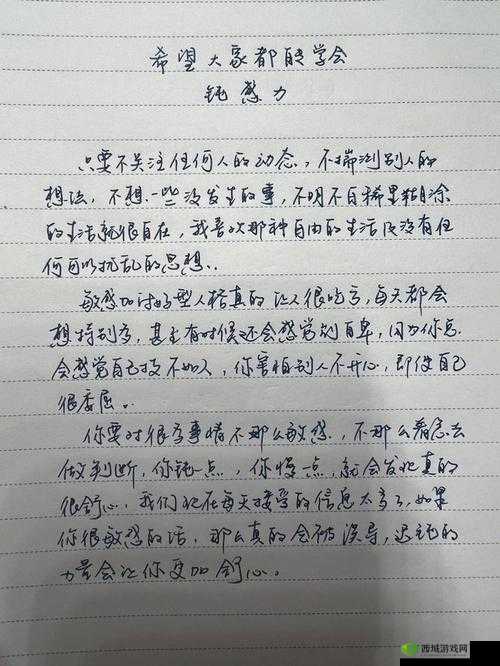 希望大家都能学会
钝感力
只要不关注任何人的动态，不揣测别人的
想法，不想一些没发生的事，不明不白稀里糊涂
的生活就很自在，我喜欢那种自由的生活及没有任
何可以扰乱的思想..
敏感加讨好型人格真的让人很吃亏，每天都会
想特别多，甚至有时候还会感觉到自卑，因为你总
会感觉自己技不如人，你害怕别人不开心，即使自己
很委屈。
你要对很多事情不那么敏感，不那么着急去
做判断，你钝一点，你慢一点，就会发现真的
很舒心，我们现在每天接受的信息太多了，如果
你很敏感的话，那么真的会被误导，迟钝的
力量会让你更加舒心。
西城游戏网